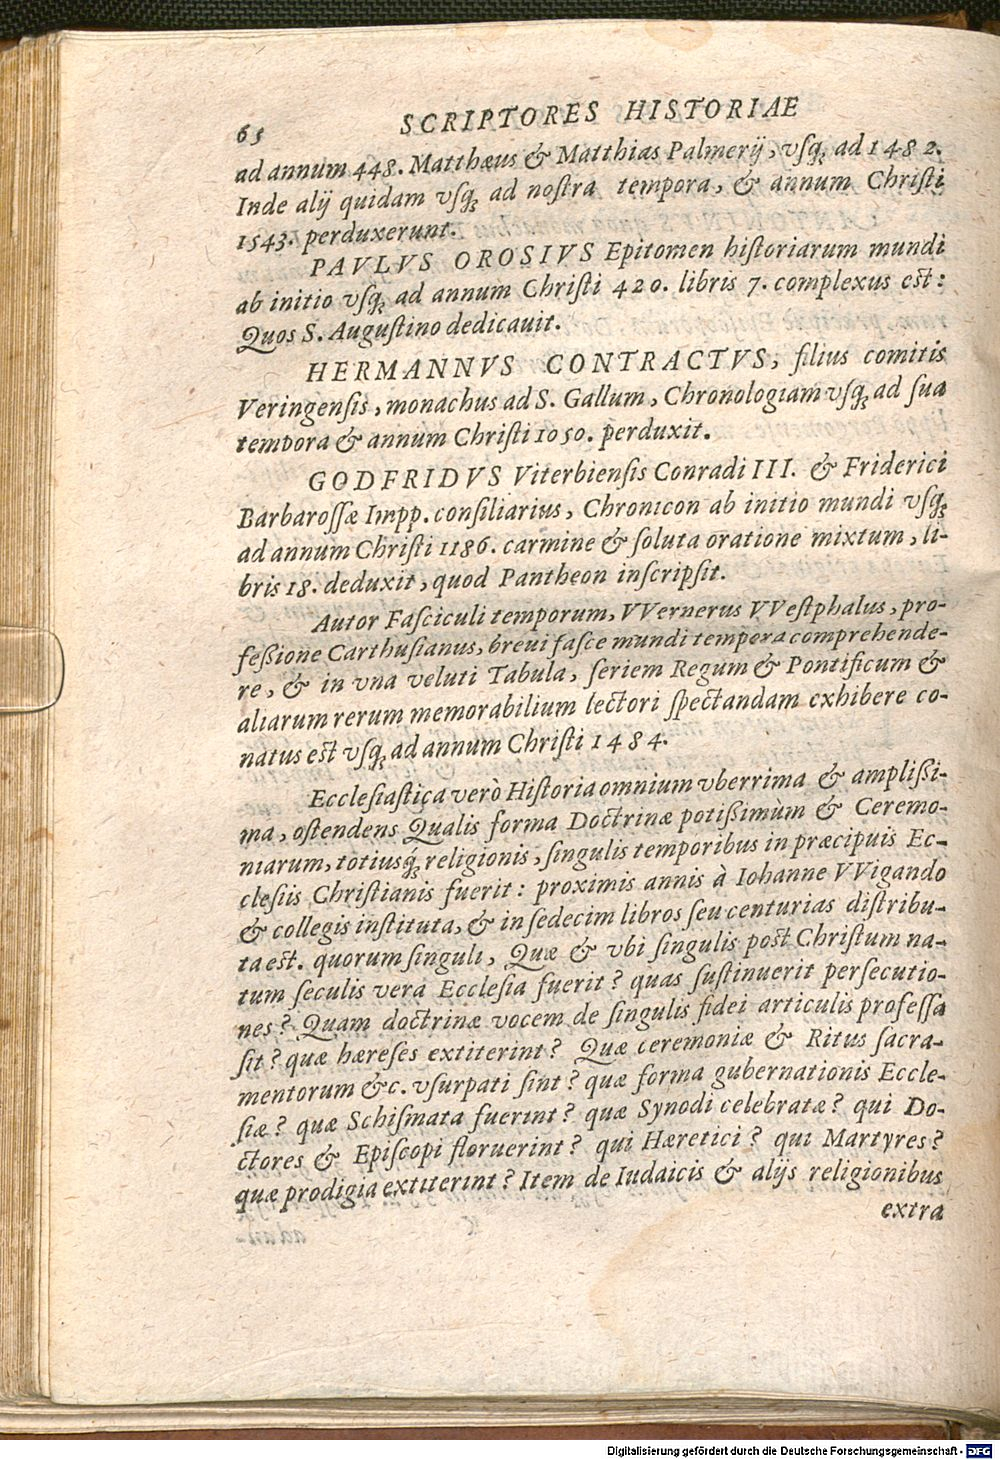 65 SCRIPTORES HISTORIAE
ad annum 448. Matthæus & Matthias Palmerij, vſq; ad 1482.
Inde alij quidam vſq; ad noſtra tempora, & annum Chriſti
1543. perduxerunt.
PAVLVS OROSIVS Epitomen hiſtoriarum mundi
ab initio vſq; ad annum Chriſti 420. libris 7. complexus est:
Quos S. Auguſtino dedicauit.
HERMANNVS CONTRACTVS, filius comitis
Veringenſis, monachus ad S. Gallum, Chronologiam vſq; ad ſua
tempora & annum Chriſti 1050. perduxit.
GODFRIDVS Viterbienſis Conradi III. & Friderici
Barbaroſſæ Impp. conſiliarius, Chronicon ab initio mundi vſq;
ad annum Chriſti 1186. carmine & ſoluta oratione mixtum, li-
bris 18. deduxit, quod Pantheon inſcripſit.
Autor Faſciculi temporum, VVernerus VVeſtphalus, pro-
feßione Carthuſianus, breui faſce mundi tempora comprehende-
re, & in vna veluti Tabula, ſeriem Regum & Pontificum &
aliarum rerum memorabilium lectori ſpectandam exhibere co-
natus est vſq; ad annum Chriſti 1484.
Eccleſiaſtica verò Hiſtoria omnium vberrima & amplißi-
ma, oſtendens Qualis forma Doctrinæ potißimùm & Ceremo-
niarum, totiusq; religionis, ſingulis temporibus in præcipuis Ec-
cleſiis Chriſtianis fuerit: proximis annis à Iohanne VVigando
& collegis inſtituta, & in ſedecim libros ſeu centurias diſtribu-
ta est. quorum ſinguli, Quæ & vbi ſingulis post Chriſtum na-
tum ſeculis vera Eccleſia fuerit? quas ſuſtinuerit perſecutio-
nes? Quam doctrinæ vocem de ſingulis fidei articulis profeſſa
ſit? quæ hæreſes extiterint? Quæ ceremoniæ & Ritus ſacra-
mentorum &c. vſurpati ſint? quæ forma gubernationis Eccle-
ſiæ? quæ Schiſmata fuerint? quæ Synodi celebratæ? qui Do-
ctores & Epiſcopi floruerint? qui Hæretici? qui Martyres?
quæ prodigia extiterint? Item de Iudaicis & alijs religionibus
extra
Digitalisierung gefördert durch die Deutsche Forschungsgemeinschaft - DFG